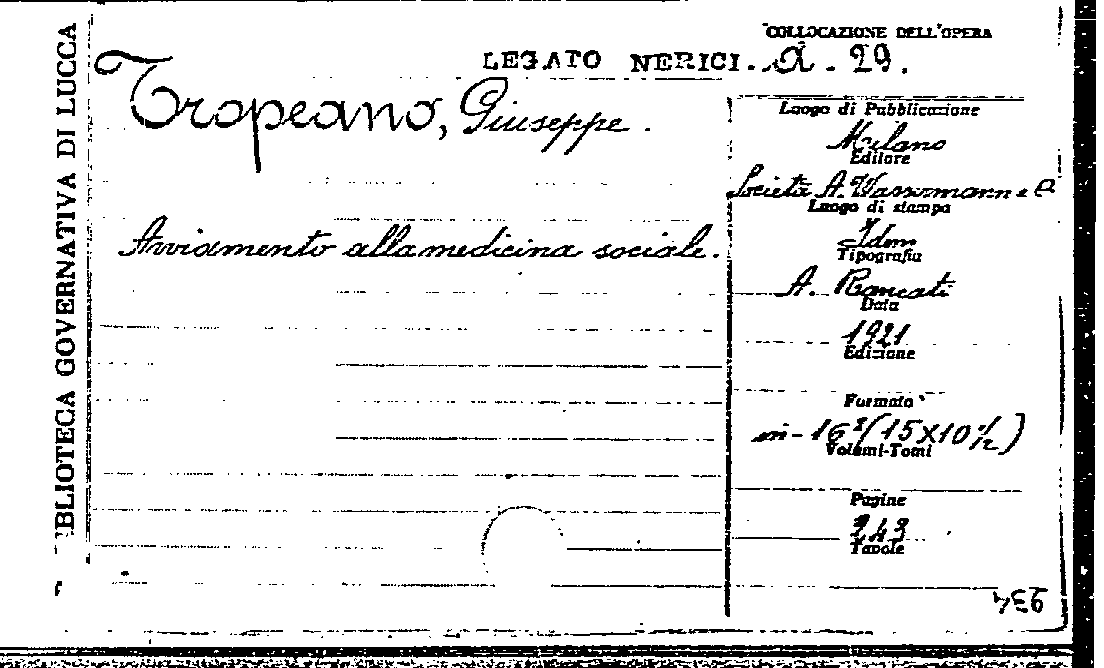 BIBLIOTECA GOVERNATIVA DI LUCCA
COLLOCAZIONE DELL'OPERA
LEGATO NERICI. A. 29.
Tropeano, Giuseppe.
Avviamento alla medicina sociale.
Luogo di Pubblicazione
Milano
Editore
Società A. Wassermann e C
Luogo di stampa
Idem
Tipografia
A. Rancati
Data
1921
Edizione
Formato
in-16º (15X10½)
Volumi-Tomi
Pagine
243
Tavole